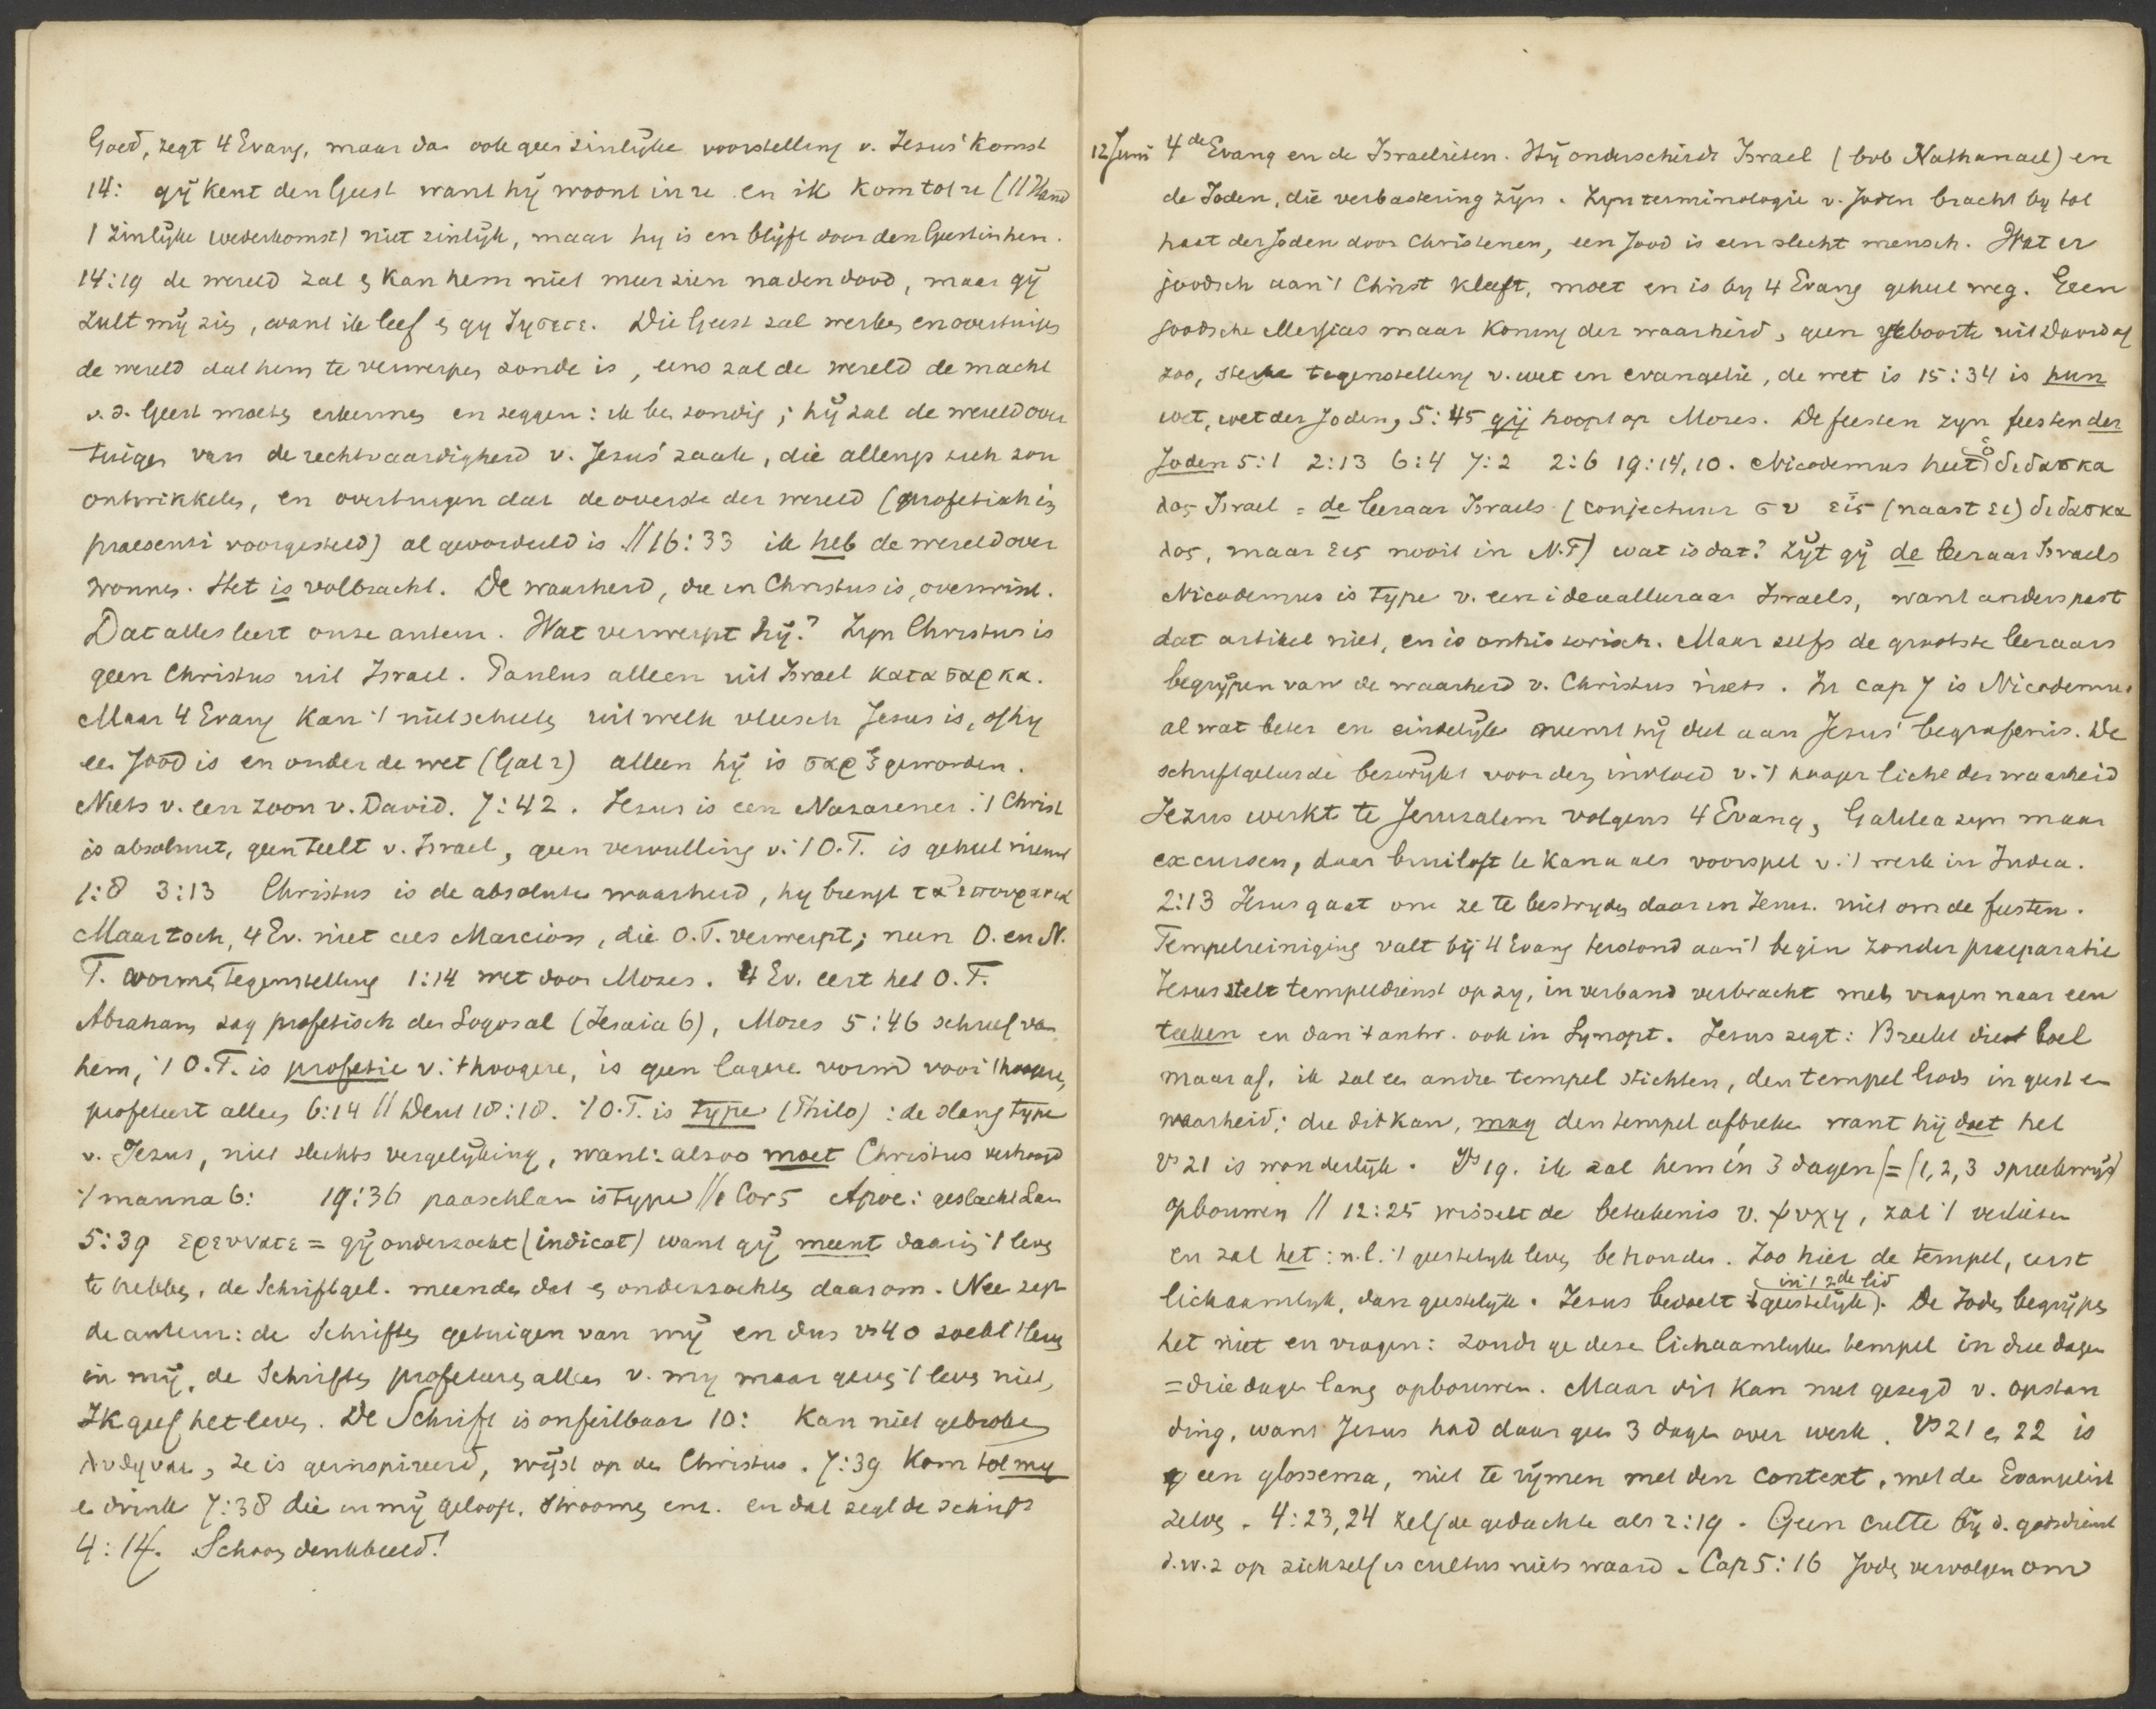 Goed, zegt 4 Evang, maar dan ook geen zinlijke voorstelling v. Jesus' komst
14: gij kent den Geest want hij woont in u en ik kom tot u (// Hand
1 zinlijke wederkomst) niet zinlijk, maar hy is en blijft door den Geest in hen.
14:19 de wereld zal & kan hem niet meer zien na den dood, maar gij
zult mij zien, want ik leef & gy ζησετε. Die Geest zal werken en overtuigen
de wereld dat hem te verwerpen zonde is, eens zal de wereld de macht
v. d. Geest moeten erkennen en zeggen: ik ben zondig; hij zal de wereld over
tuigen van de rechtvaardigheid v. Jesus' zaak, die allengs zich zou
ontwikkelen, en overtuigen dat de overste der wereld (profetisch in
praesenti voorgesteld) al geoordeeld is // 16:33 ik heb de wereld over
wonnen. Het is volbracht. De waarheid, die in Christus is, overwint.
Dat alles leert onze auteur. Wat verwerpt hij? Zyn Christus is
geen Christus uit Israel. Paulus alleen uit Israel κατα σαρκα.
Maar 4 Evang kan 't niet schelen uit welk vleesch Jesus is, of hy
een Jood is en onder de wet (Gal 2) alleen hij is σαρξ geworden.
Niets v. een zoon v. David. 7:42. Jesus is een Nazarener. 't Christ
is absoluut, geen teelt v. Israel, geen vervulling v. 't O.T. is geheel nieuw
1:8 3:13 Christus is de absolute waarheid, hy brengt τα επουρανια
Maar toch, 4 Ev. niet als Marcion, die O.T. verwerpt; neen O. en N.
T. vormen tegenstelling 1:14 wet door Mozes. 4 Ev. eert het O.T.
Abraham zag profetisch den Logos al (Jesaia 6), Mozes 5:46 schreef van
hem, 't O.T. is profetie v. 't hoogere, is geen lagere vorm voor 't hoogere,
profeteert alleen 6:14 // Deut 18:18. 't O.T. is type (Philo): de slang type
v. Jesus, niet slechts vergelijking, want: alzoo moet Christus verhoogd
't manna 6: 19:36 paaschlam is type // 1 Cor 5 Apoc: geslacht Lam
5:39 ερευνατε = gij onderzoekt (indicat) want gij meent daarin 't leven
te hebben, de Schriftgel. meenden dat & onderzochten daarom. Nee zegt
de auteur: de Schriften getuigen van mij en dus vs 40 zoekt 't leven
in mij, de Schriften profeteeren alleen v. my maar geven 't leven niet,
Ik geef het leven. De Schrift is onfeilbaar 10: kan niet gebroken
λυθηναι, ze is geinspireerd, wijst op den Christus. 7:39 Kom tot my
en drink 7:38 die in mij gelooft. stroomen enz. en dat zegt de schrift
4:14. Schoon denkbeeld!
12 Juni 4de Evang en de Israelieten. Hij onderscheidt Israel (bvb Nathanael) en
de Joden, die verbastering zijn. Zyn terminologie v. Joden bracht by tot
haat der Joden door Christenen, een Jood is een slecht mensch. Wat er
joodsch aan 't Christ kleeft, moet en is by 4 Evang geheel weg. Geen
joodsche Messias maar Koning der waarheid, geen geboorte uit David of
zoo, sterke tegenstelling v. wet en evangelie, de wet is 15:34 is hun
wet, wet der Joden, 5:45 gij hoopt op Mozes. De feesten zyn feesten der
Joden 5:1 2:13 6:4 7:2 2:6 19:14, 10. Nicodemus heet ὁ διδασκα
λος Israel = de leeraar Israels (conjectuur συ εἷς (naast ει) διδασκα
λος, maar εις nooit in N.T) wat is dat? Zijt gij de leeraar Israels
Nicodemus is type v. een ideaalleraar Israels, want anders past
dat artikel niet, en is onhistorisch. Maar zelfs de grootste leeraars
begrijpen van de waarheid v. Christus niets. In cap 7 is Nicodemus
al wat beter en eindelijk neemt hij deel aan Jesus' begrafenis. De
schriftgeleerde bezwijkt voor den invloed v. 't hooger licht der waarheid
Jezus werkt te Jeruzalem volgens 4 Evang, Galilea zyn maar
excursen, daar bruiloft te Kana als voorspel v. 't werk in Judea.
2:13 Jesus gaat om ze te bestrijden daar in Jeruz. niet om de feesten.
Tempelreiniging valt bij 4 Evang terstond aan 't begin zonder praeparatie
Jesus stelt tempeldienst op zy, in verband verbracht met vragen naar een
teeken en dan 't antw. ook in Synopt. Jesus zegt: Breekt dien boel
maar af, ik zal een andre tempel stichten, den tempel Gods in geest en
waarheid; die dit kan, mag den tempel afbreken want hij doet het
Vs 21 is wonderlijk. Vs 19. ik zal hem in 3 dagen (= (1, 2, 3 spreekwijs)
opbouwen // 12:25 wisselt de beteekenis v. ψυχη, zal 't verliezen
en zal het: n.l. 't geestelyk leven behouden. Zoo hier de tempel, eerst
lichaamlyk, dan geestelijk. Jesus bedoelt (in 't 2de lid geestelijk). De Joden begrijpen
het niet en vragen: zoudt ge deze lichaamlyke tempel in drie dagen
= drie dagen lang opbouwen. Maar dit kan niet gezegd v. opstan
ding, want Jesus had daar geen 3 dagen over werk. Vs 21 & 22 is
een glossema, niet te rijmen met den context, met de Evangelist
zelve. 4:23, 24 zelfde gedachte als 2:19. Geen culte bij d. godsdienst
d.w.z op zichzelf is cultus niets waard. Cap 5:16 Joden vervolgen om